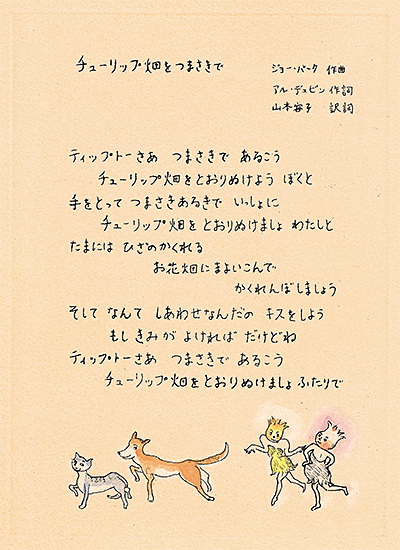 チューリップ畑をつまさきで
ジョー・バーク 作曲
アル・デュビン 作詞
山本容子 訳詞
ティップトーさあ つまさきで あるこう
チューリップ畑をとおりぬけよう ぼくと
手をとって つまさきあるきで いっしょに
チューリップ畑をとおりぬけましょ わたしと
たまには ひざのかくれる
お花畑にまよいこんで
かくれんぼしましょう
そして なんて しあわせなんだの キスをしよう
もし きみが よければ だけどね
ティップトーさあ つまさきで あるこう
チューリップ畑をとおりぬけましょ ふたりで